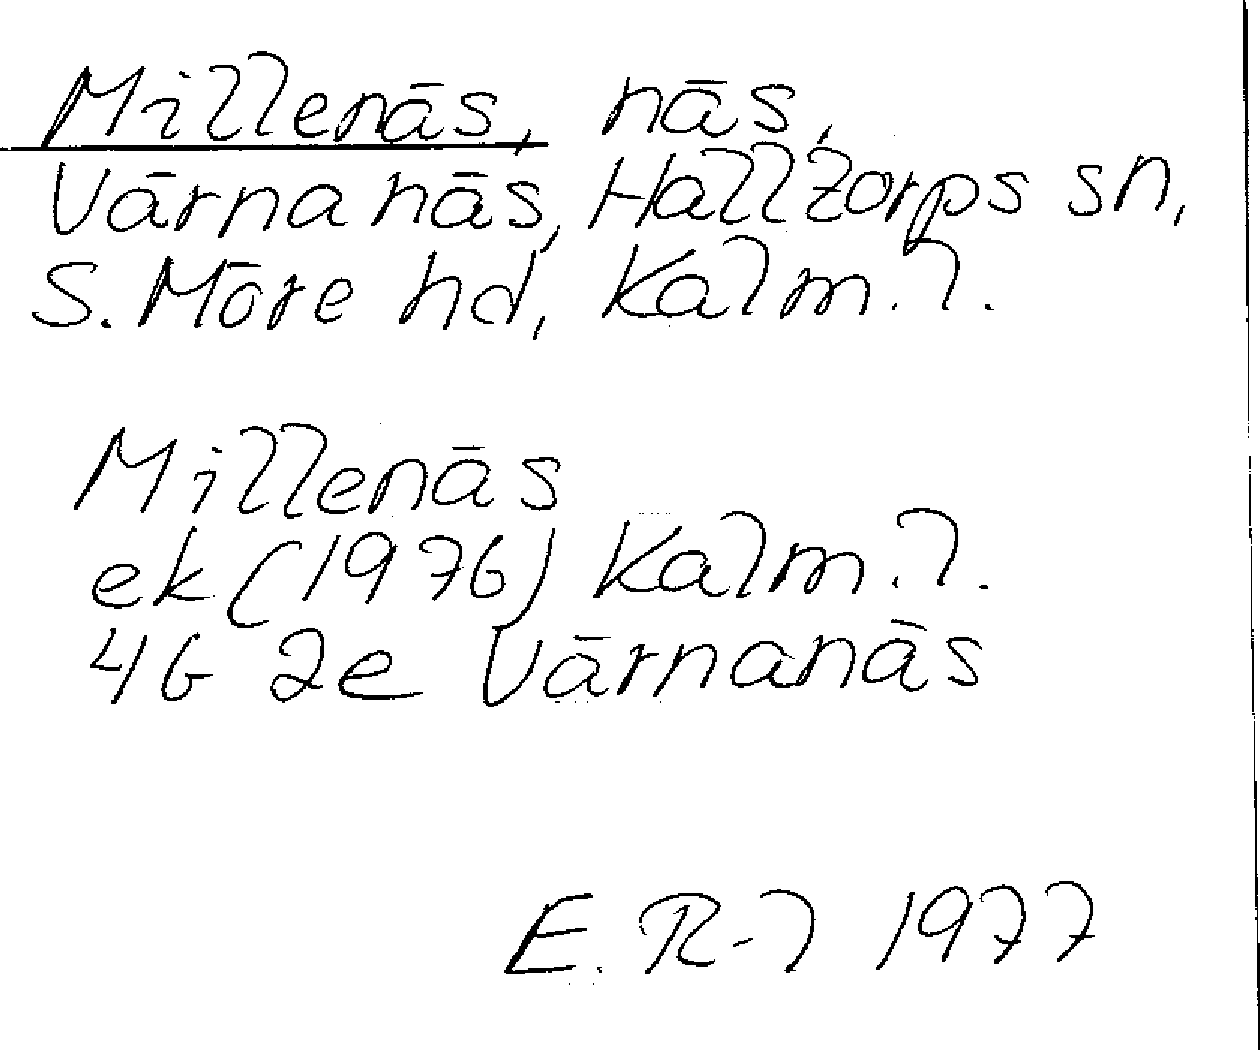 Millenäs, näs,
Värnanäs, Halltorps sn,
S. Möre hd, Kalm. l.
Millenäs
ek (1976) Kalm. l.
4G 2e Värnanäs
E. R-l 1977